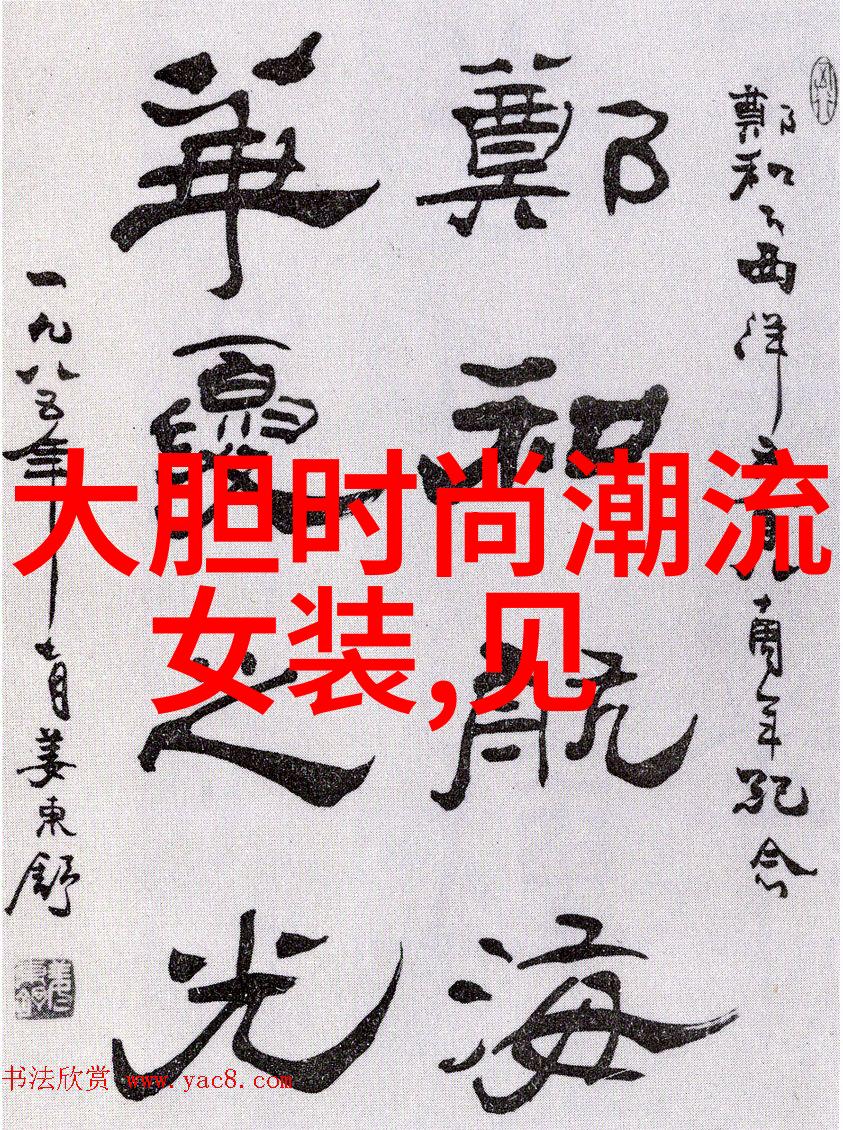 鄭和下西洋五百八十周年紀念
鄭和航海
華夏之光
一九八五年七月姜東舒
大胆时尚潮流
女装,见
书法欣赏 www.yac8.com